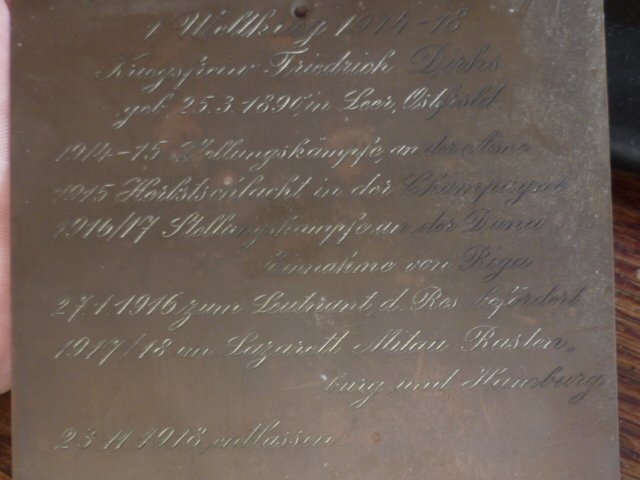 1 Weltkrieg 1914-18
Friedrich Dirks
geb. 25.3.1896, in Leer, Ostfrsld.
1914-15 Stellungskämpfe, an der Aisne
1915 Herbstschlacht in der Champagne
1916/17 Stellungskämpfe an der Düna
Einnahme von Riga
27.1.1916 zum Leutnant, d. Res. befördert
1917/18 im Lazarett Mitau Rasten,,
burg und
23.11.1918, entlassen.